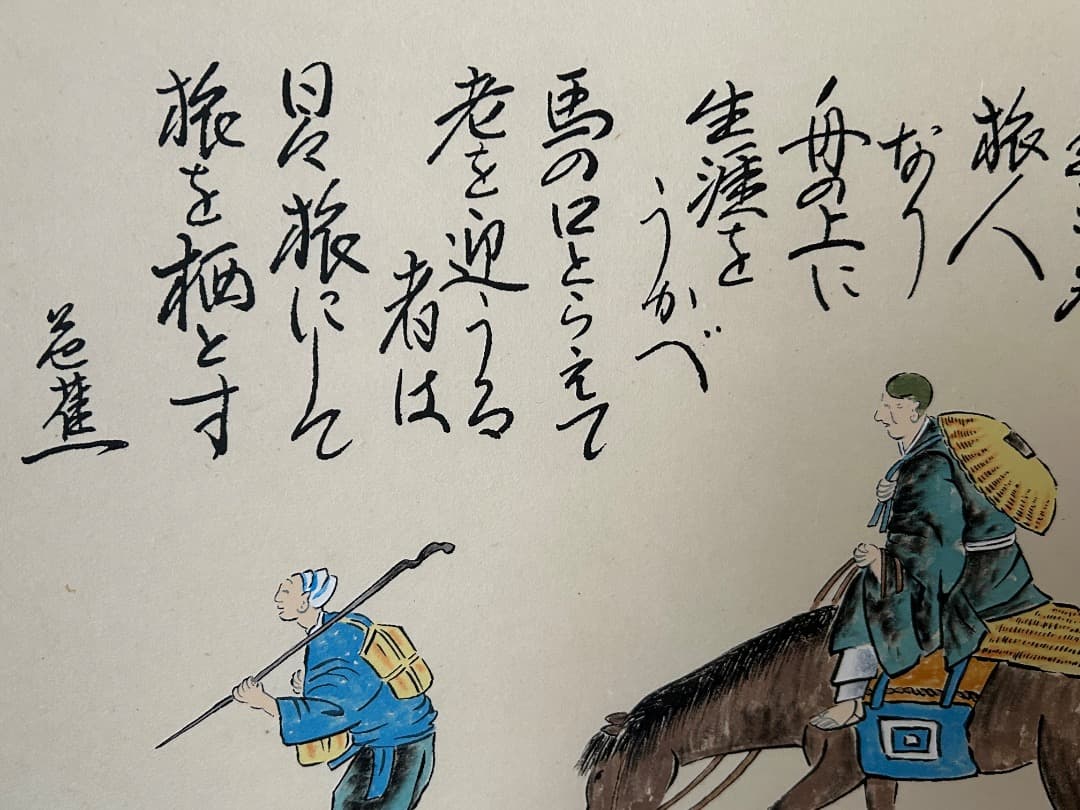 旅人
なり
舟の上に
生涯を
うかべ
馬の口とらえて
老を迎うる
者は
日々旅にして
旅を栖とす
芭蕉